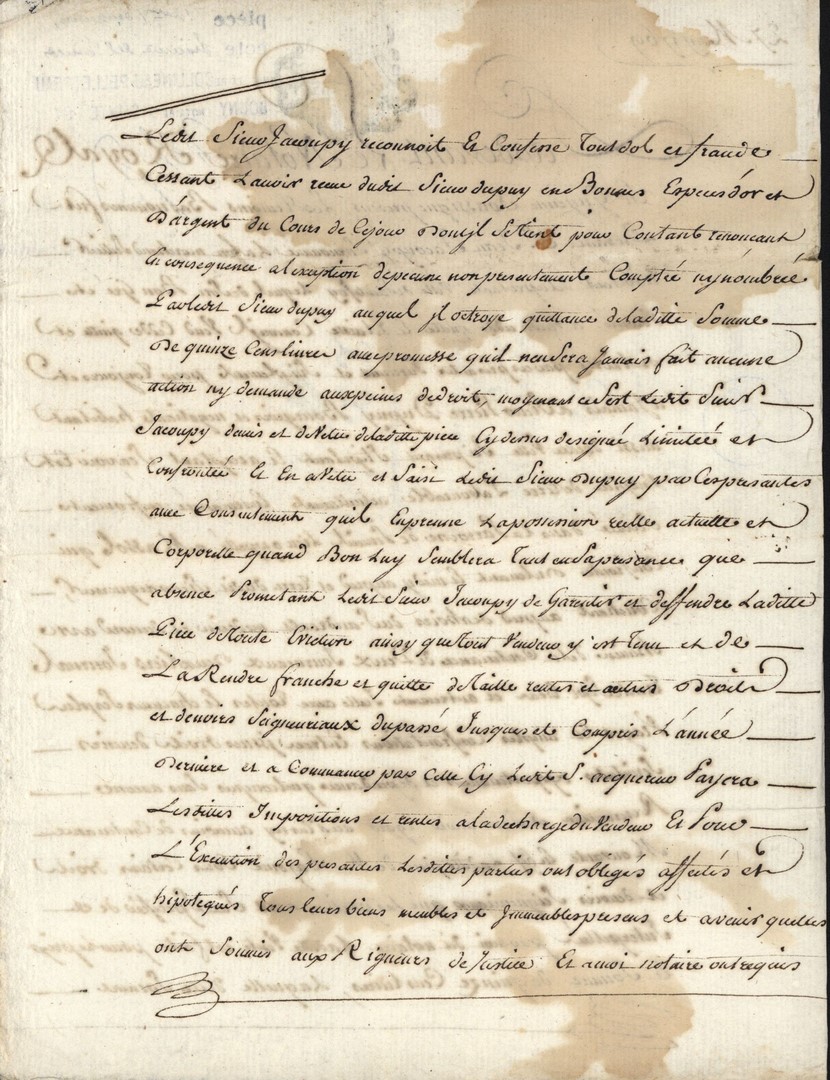 Ledit Sieur Jacoupy reconnoit Et Confesse Tout dol et fraude
Cessant Lavoir receu dudit Sieur dupuy en Bonnes Especes d'or et
D'argent du Cours de Cejour Dont jl se tient pour Contant renonceant
En consequence a lexception de pecune non presentement Comptée ny nombréé
Par ledit Sieur dupuy auquel jl octroye quittance deladitte Somme
De quinze Cens livres avec promesse quil nen Sera Jamais fait aucune
action ny demande aux peines de droit, moyenant ce Sest Ledit Sieur
Jacoupy demis et devetu deladitte piece Cy dessus designéé Limitéé et
Confrontéé Et En a vetu et Saisi Ledit Sieur Dupuy par Cespresantes
avec Consentement quil Enprenne La possession reelle actuelle et
Corporelle quand Bon Luy Semblera Tant en Sa presance que
absence Prometant Ledit Sieur Jacoupy de Garentir et deffendre Laditte
Piece de toute Eviction ainsy que tout Vendeur y est Tenu et de
La Rendre franche et quitte de taille rentes et autres Droits
et devoirs Seigneuriaux du passé Jusques et Compris L'année
Derniere et a Commancer par Celle Cy Ledit S. acquereur Payera
Lesdittes Impositions et rentes a la decharge du Vendeur Et Pour
L'Execution des presantes Lesdittes parties ont obligés affectés et
hipotequés Tous leurs biens meubles et Jmmeubles presens et avenir quelles
ont Soumis aux Rigueurs de Justice Et a moi notaire ont requis